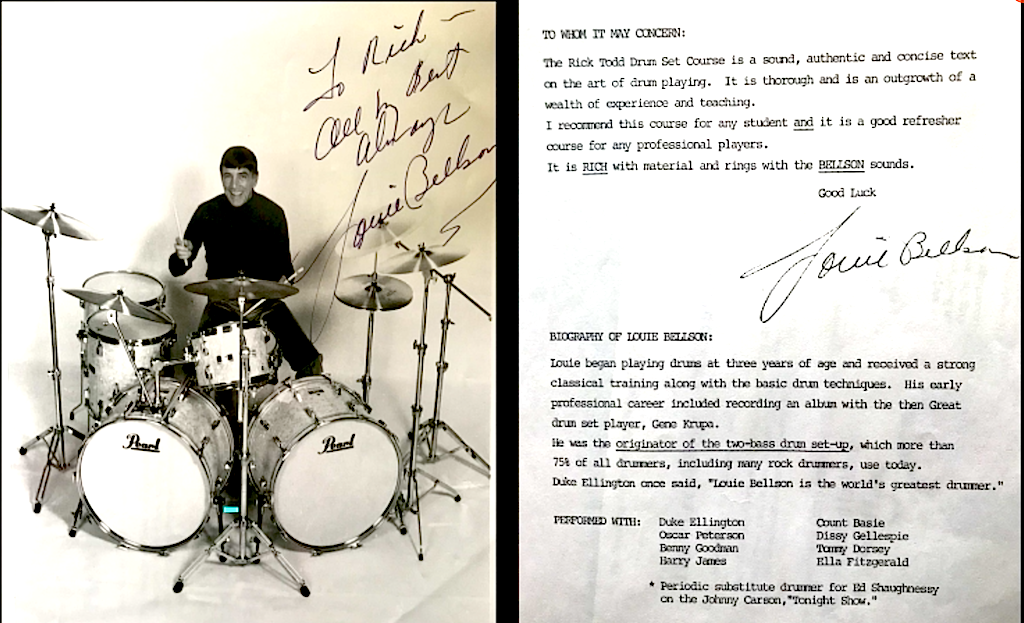 To Rich —
All My Best
Always
Louie Bellson
Pearl
Pearl
TO WHOM IT MAY CONCERN:
The Rick Todd Drum Set Course is a sound, authentic and concise text
on the art of drum playing. It is thorough and is an outgrowth of a
wealth of experience and teaching.
I recommend this course for any student and it is a good refresher
course for any professional players.
It is RICH with material and rings with the BELLSON sounds.
Good Luck
Louie Bellson
BIOGRAPHY OF LOUIE BELLSON:
Louie began playing drums at three years of age and received a strong
classical training along with the basic drum techniques. His early
professional career included recording an album with the then Great
drum set player, Gene Krupa.
He was the originator of the two-bass drum set-up, which more than
75% of all drummers, including many rock drummers, use today.
Duke Ellington once said, "Louie Bellson is the world's greatest drummer."
PERFORMED WITH: Duke Ellington Count Basie
Oscar Peterson Dissy Gellespie
Benny Goodman Tommy Dorsey
Harry James Ella Fitzgerald
* Periodic substitute drummer for Ed Shaughnessy
on the Johnny Carson,"Tonight Show."